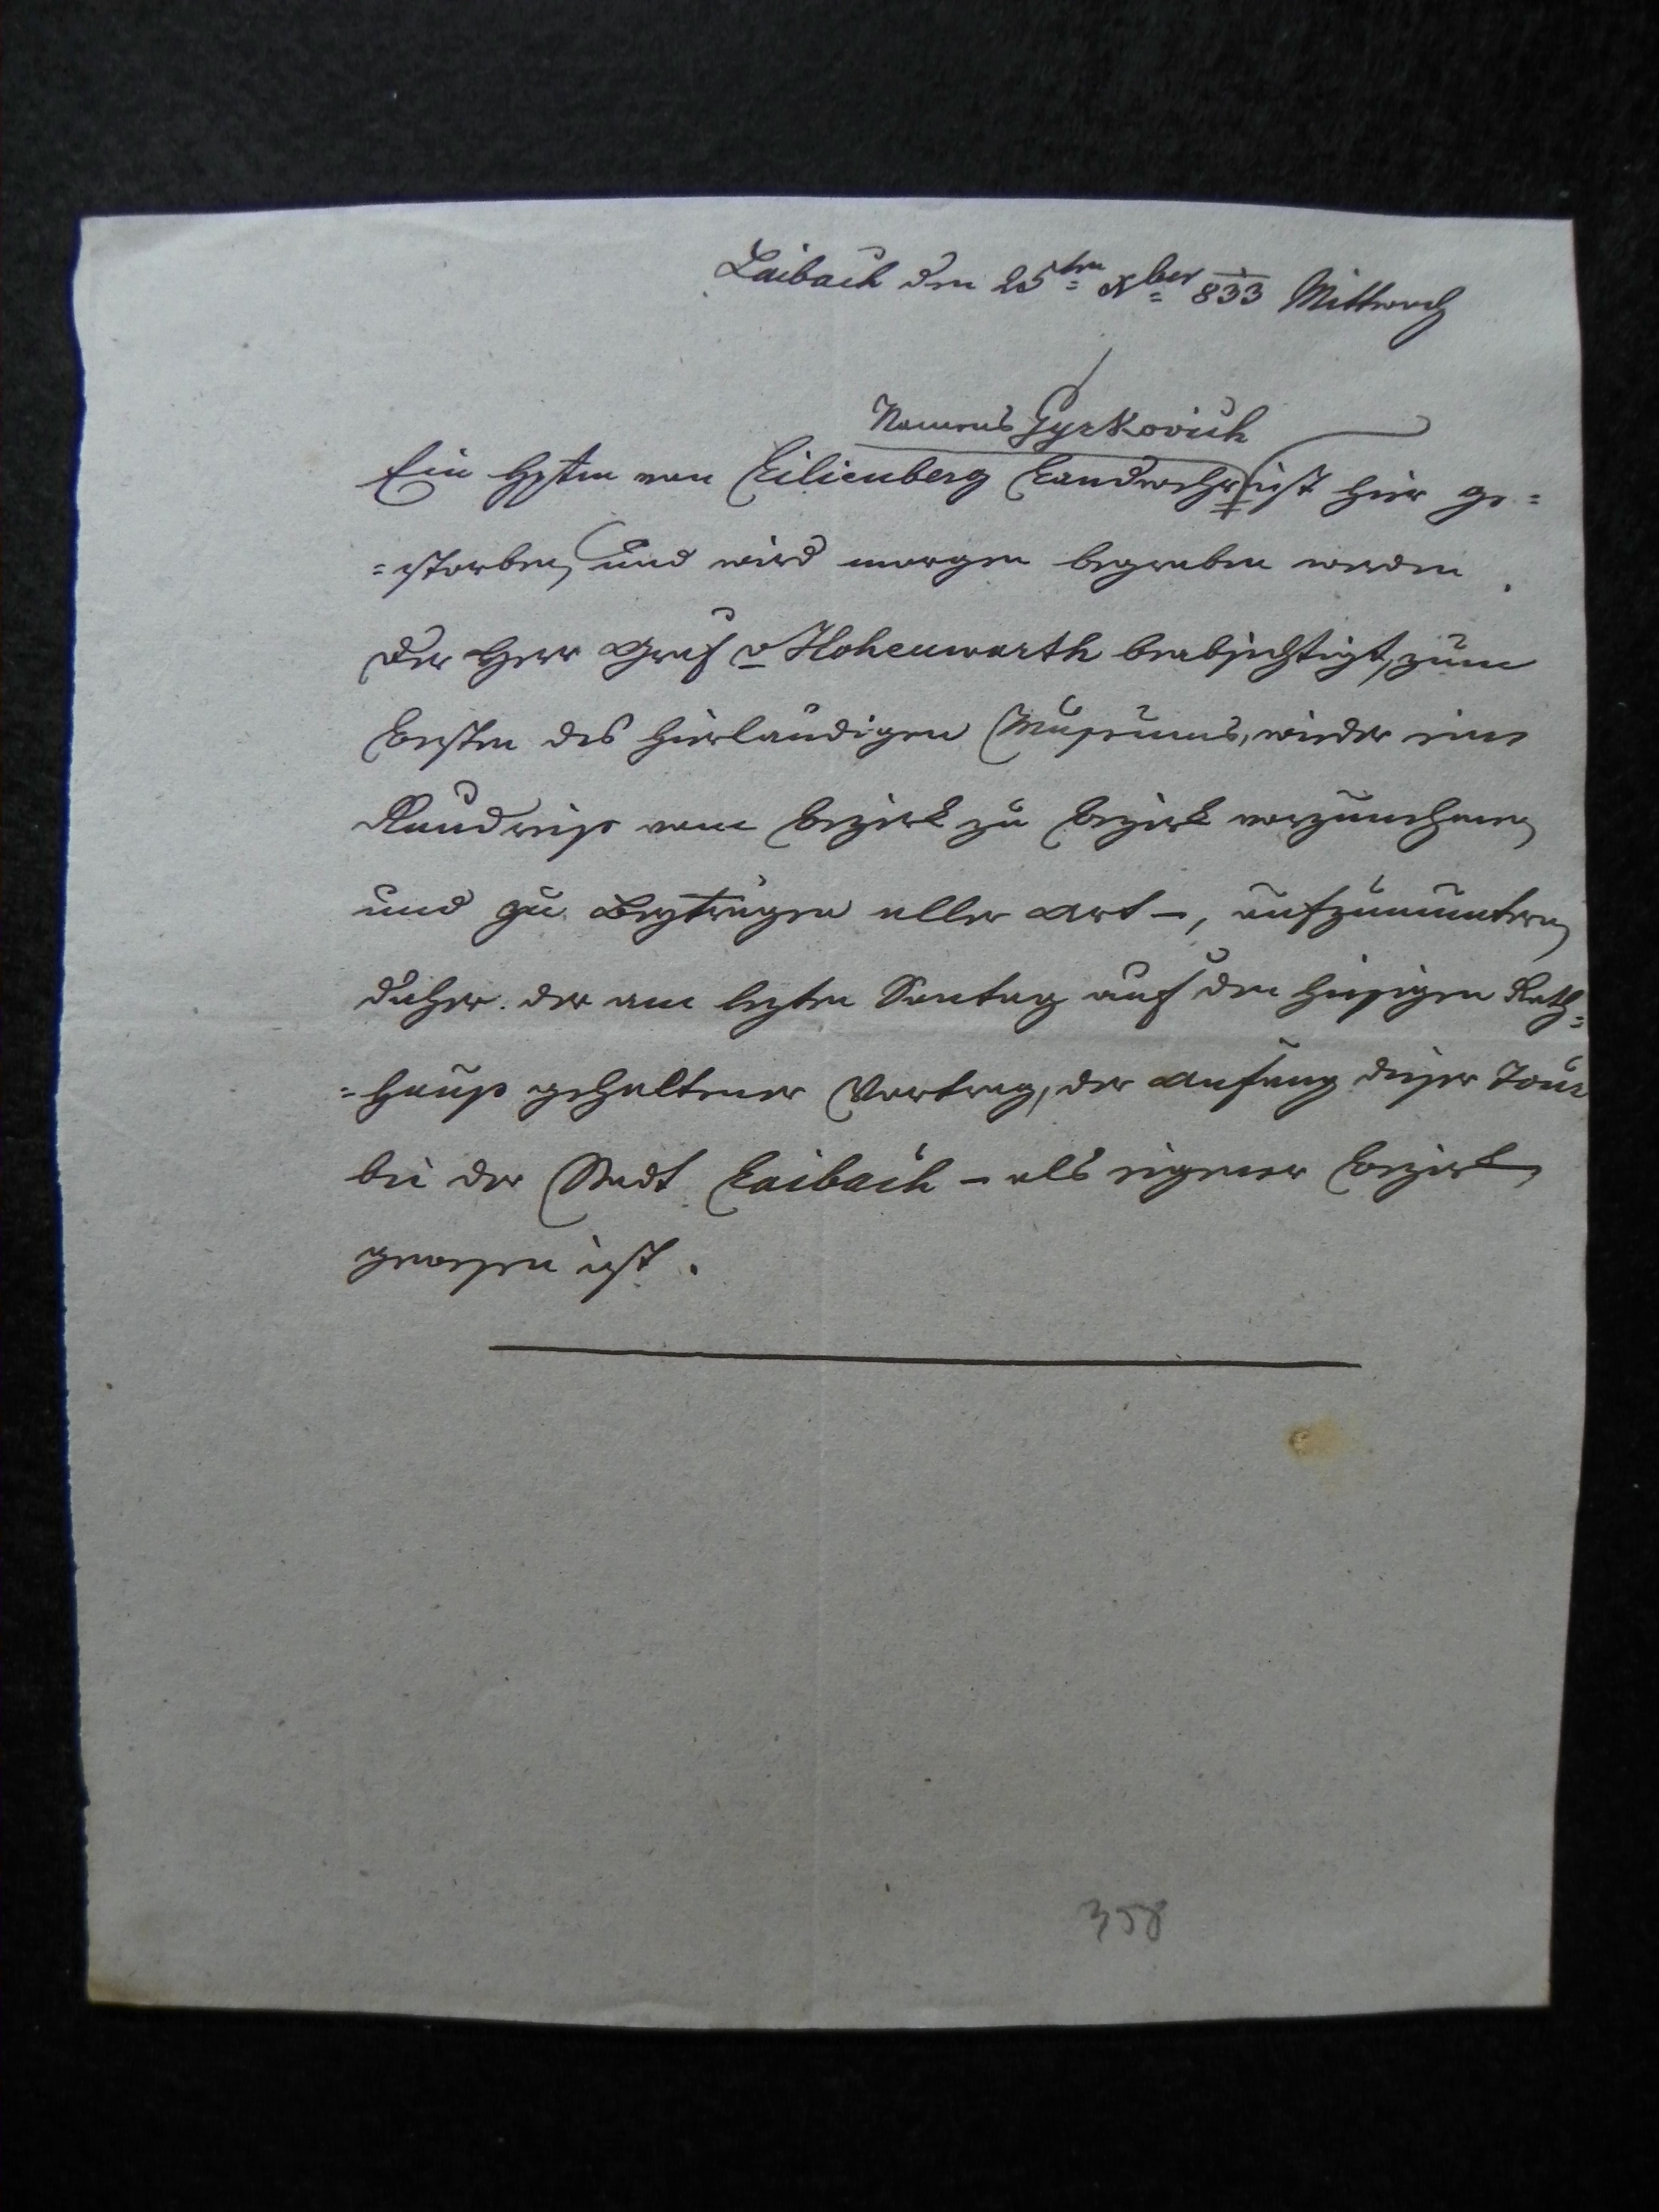 Laibach den 25ten Xber 833 Mittwoch
Namens Gyrkovich
Ein Hptm von Lilienberg Landwehr ist hier ge=
=storben, und wird morgen begraben werden.
Der Herr Graf v Hohenwarth beabsichtigt, zum
Besten des hierländigen Museums, wieder eine
Rundreise vom Bezirk zu Bezirk vorzunehmen,
und zu Beyträgen aller Art –, aufzumuntern,
daher der am lezten Sontag auf den hiesigen Rath=
=hauß gehaltener Vortrag, der Anfang dieser Tour
bei der Stadt Laibach – als eigener Bezirk,
gewesen ist.
358